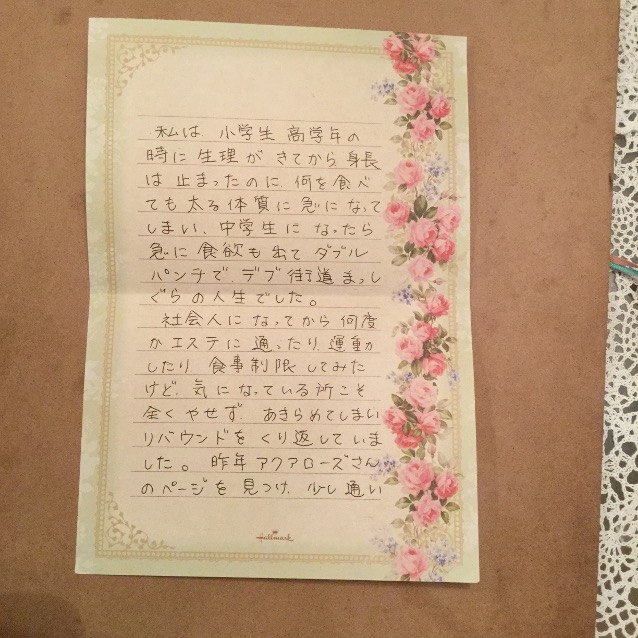 私は、小学生 高学年の
時に 生理が きてから 身長
は 止まったのに、何を食べ
ても太る体質に急になって
しまい、中学生に なったら
急に 食欲も 出て ダブル
パンチで、デブ街道まっし
ぐらの人生でした。
社会人に なってから 何度
か エステに 通ったり、運動
したり 食事制限 してみた
けど、気になっている所こそ
全く やせず、あきらめてしまい
リバウンドを くり返していま
した。昨年 アクアローズさん
のページを 見つけ、少し通い
Hallmark